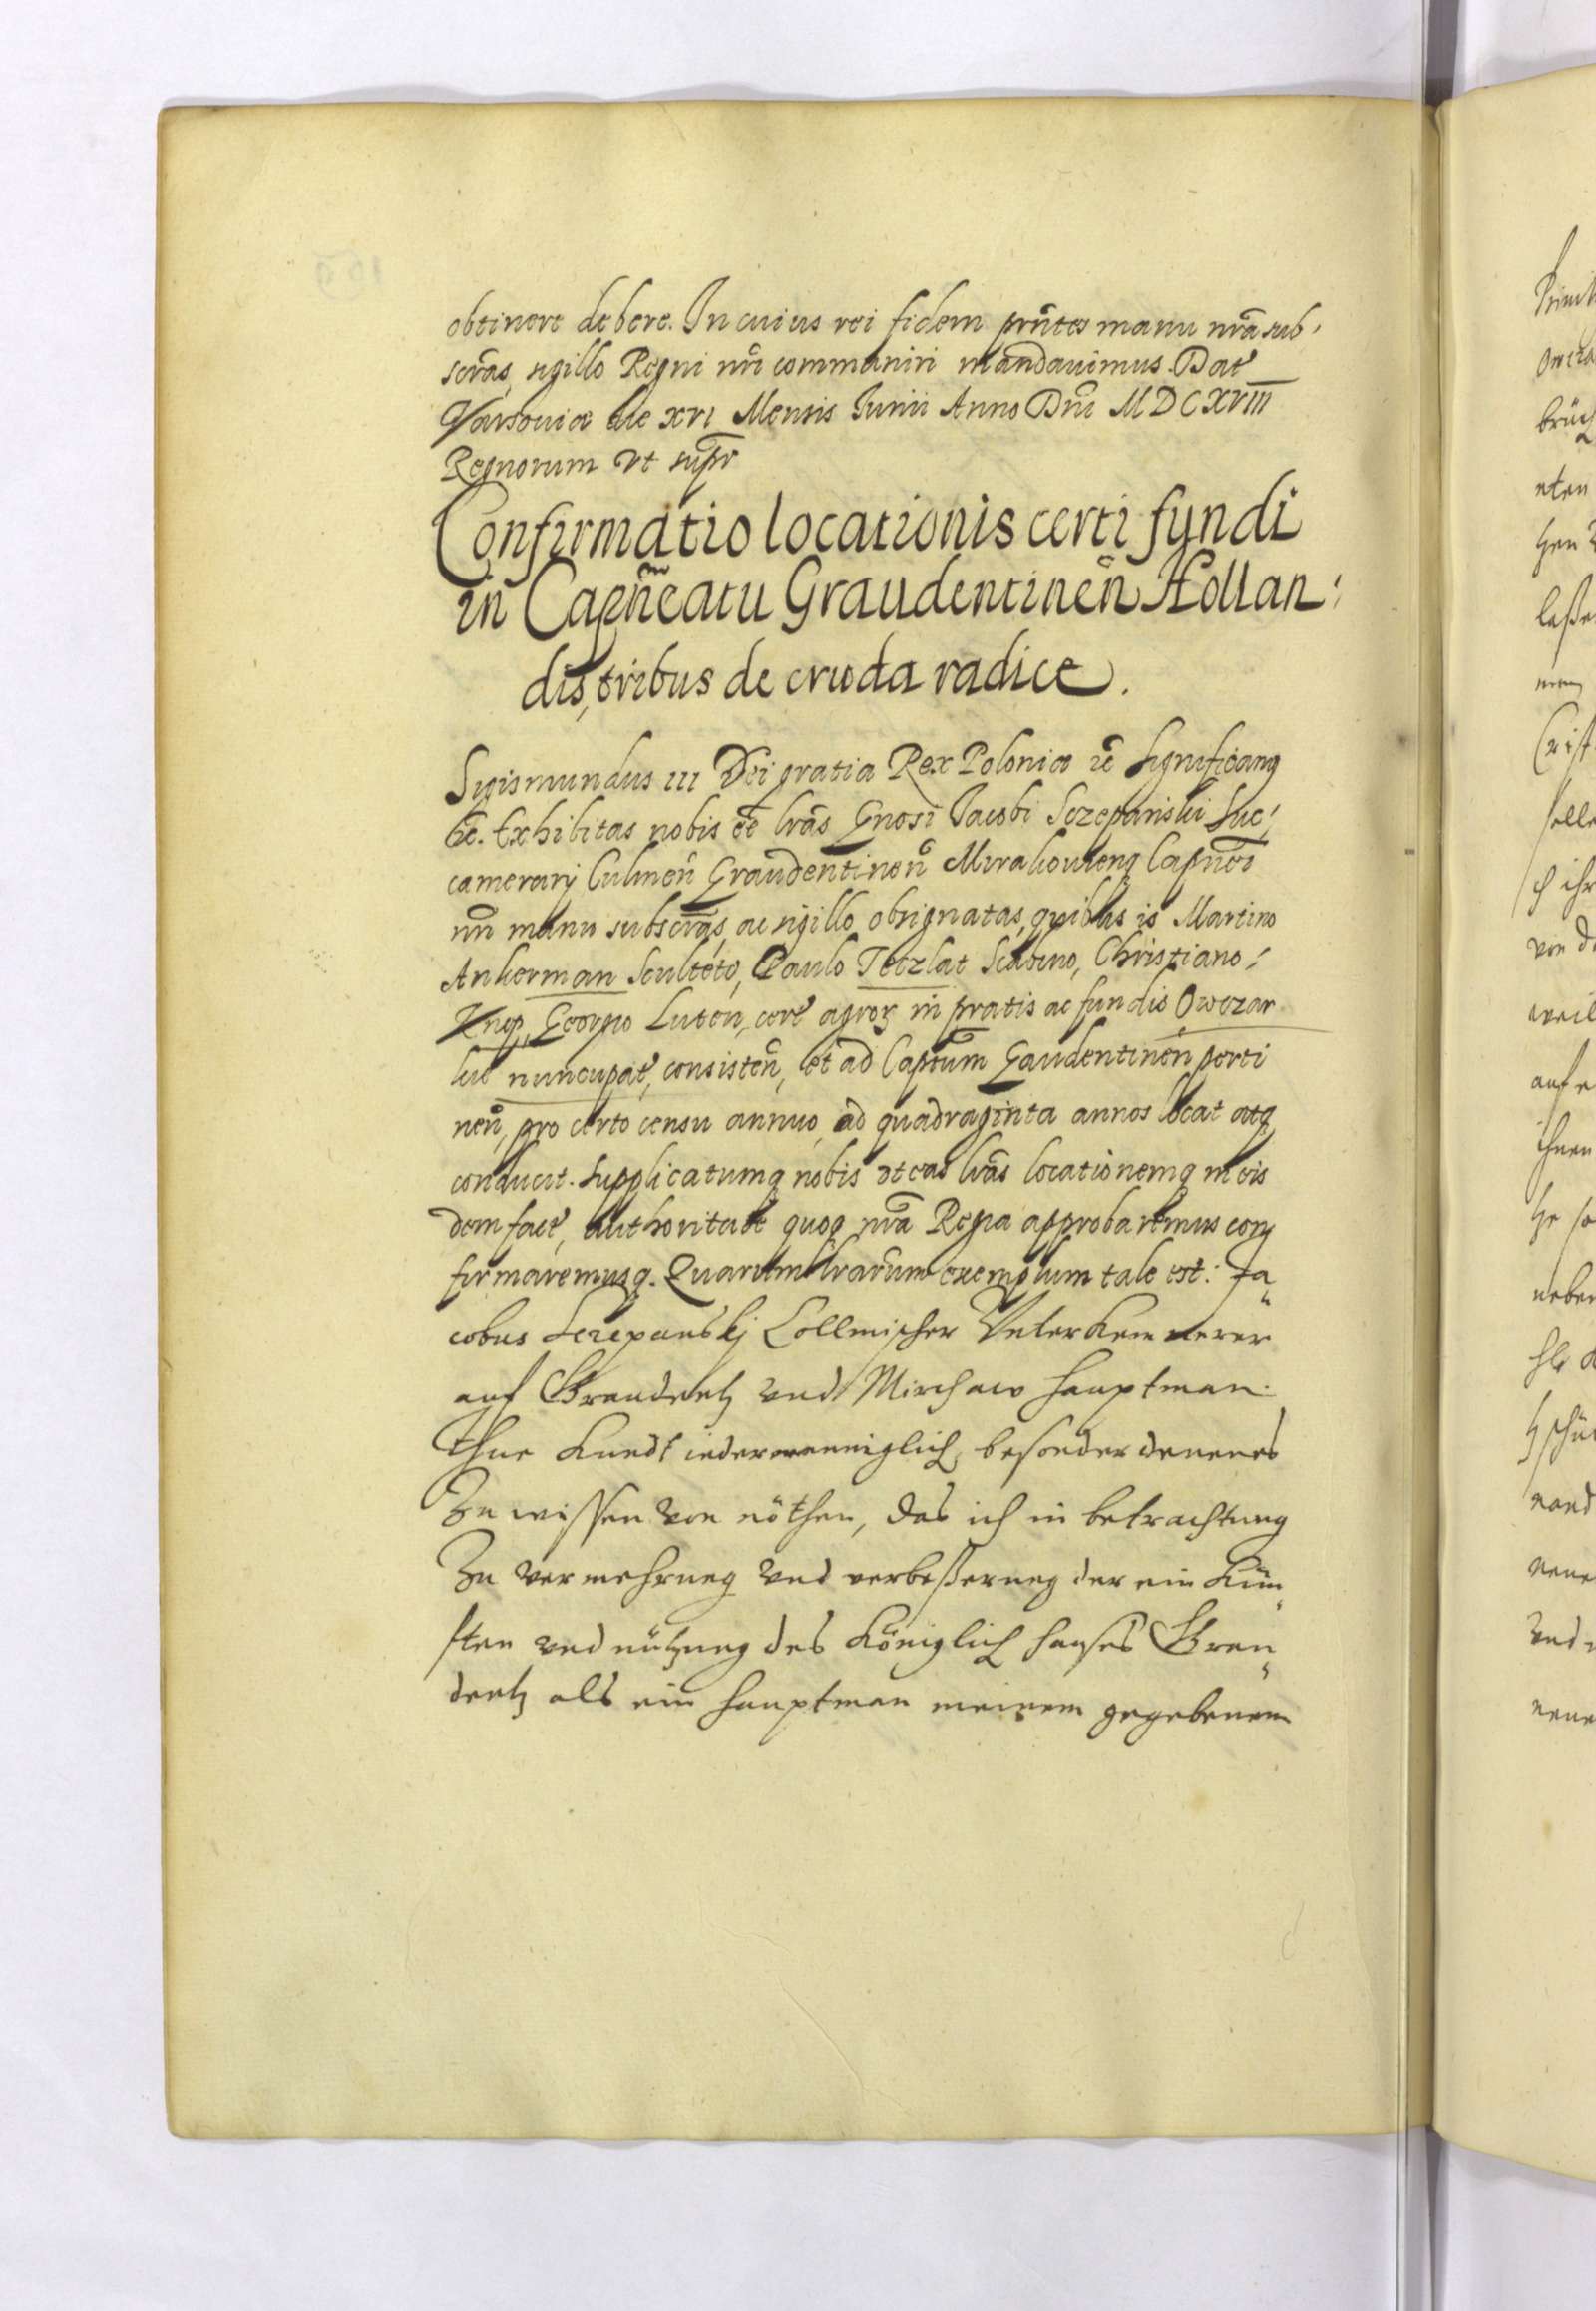 obtinere debere. In cuius rei fidem prñtes manu nrã sub,
scrãs, sigillo Regni nri̅ communiri mandauimus. Dat̃
Varsouiæ die XVI Mensis Iunii Anno Dni̅ MDCXVIII
Regnorum vt supr̃
Confirmatio locationis certi fundi
in Capñeatu Graudentineñ Hollan:
dis, tribus de cruda radice.
Sigismundus III Dei gratia Rex Poloniæ &c̃ Significamq
&c̃. Exhibitas nobis eẽ lrãs Gnosi Jacobi Sczepanski Suc:
camerarij Culmeñ Graudentineñ Mirahouienq Capnei
nri̅ manu subscrãs, ac sigillo obsignatas, quibus is Martino
Ankerman Sculteto, Paulo Tetzlat Scabino, Christiano:
Knep, Georgio Luteñ, cert̃ agroꝝ in pratis ac fundis Owczar
lue nuncupat̃, consisteñ, et ad Captum̃ Gaudentineñ perti
neñ, pro certo censu annuo, ad quadraginta annos locat atq
conducit. Supplicatumq nobis vt eas lrãs locationemq in eis
dem fact̃, authoritate quoq nrã Regia approbaremus con
firmaremusq. Quarum lrarũm exemplum tale est: Ja
cobus Sczepanskj Collmischer Vnterkemmerer
auf Graudentz vnd Mirchaw Hauptman.
Thue kundt iedermenniglich, besonder denenes
Zu wissen von nöthen, das ich in betrachtung
Zu vermehrung vnd verbesserung der ein kün
ften vnd nützung des Königlich hauses Grau
dentz als ein Hauptman meinem gegebenem